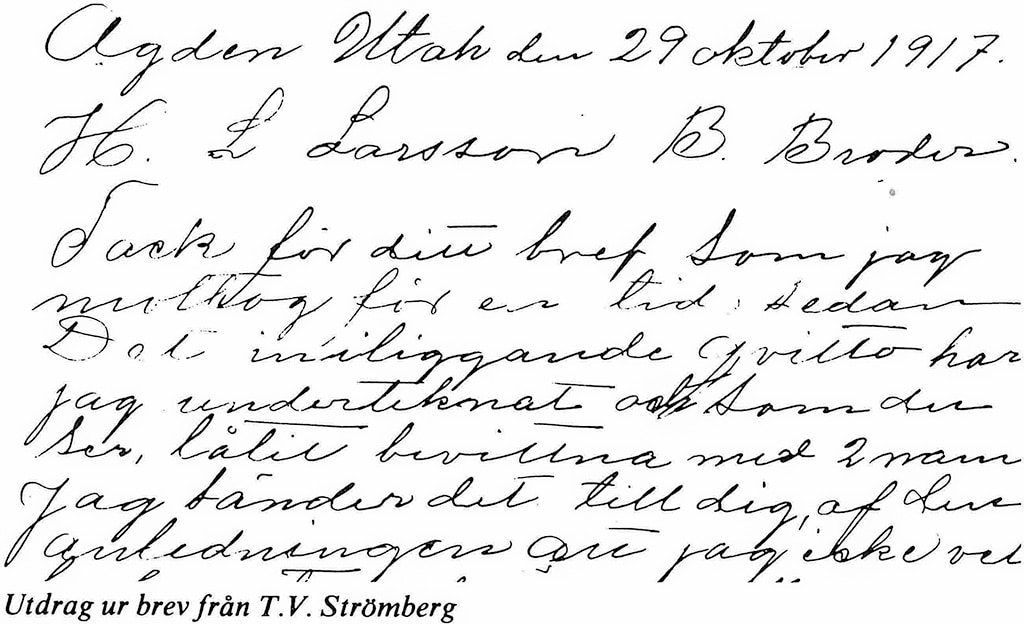 Ogden Utah den 29 oktober 1917.
H. L Larsson B. Broder.
Tack för ditt bref Som jag
mottog för en tid sedan
Det inneliggande qvitto har
jag underteknat och Som du
Ser, låtit bevittna med 2 nam
Jag sänder det till dig, af den
anledningen att jag icke vet
Utdrag ur brev från T.V. Strömberg